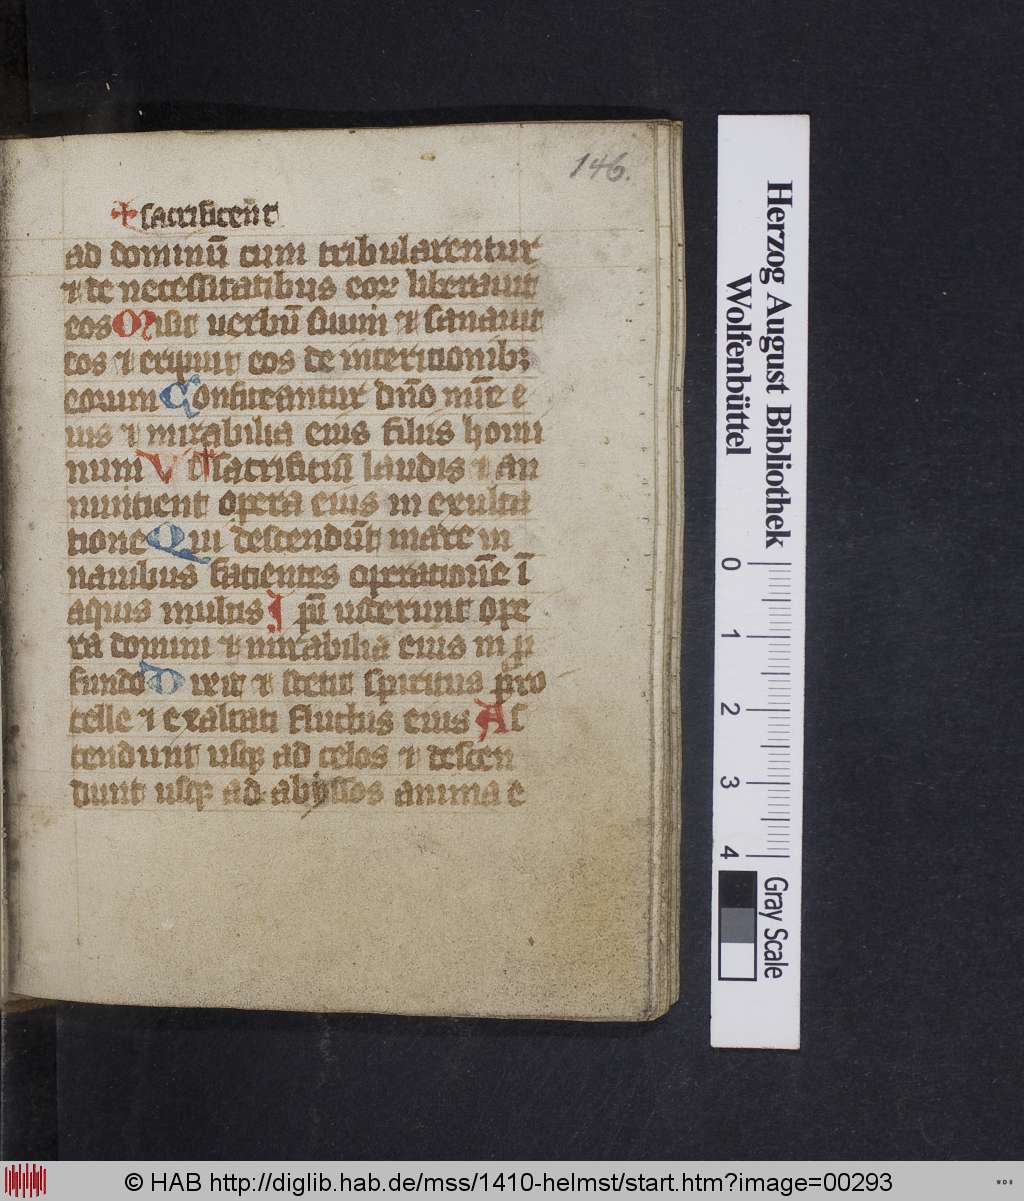 146.
✝ sacrificent
ad dominū cum tribularentur
⁊ de necessitatibus eoꝝ liberauit
eos Misit uerbū suum ⁊ sanauit
eos ⁊ eripuit eos de interitionibꝫ
eorum Confiteantur dn̄o mīe e
ius ⁊ mirabilia eius filiis homi
num Vt ✝ sacrificiū laudis ⁊ an
nuntient opera eius in exulta
tione Qui descendūt mare in
nauibus facientes operationē ī
aquis multis Ipī uiderunt ope
ra domini ⁊ mirabilia eius in ꝓ
fundo Dixit ⁊ stetit spiritus pro
celle ⁊ exaltati fluctus eius As
cendunt usqꝫ ad celos ⁊ descen
dunt usqꝫ ad abyssos anima e
Herzog August Bibliothek
Wolfenbüttel
0 1 2 3 4
Gray Scale
© HAB http://diglib.hab.de/mss/1410-helmst/start.htm?image=00293